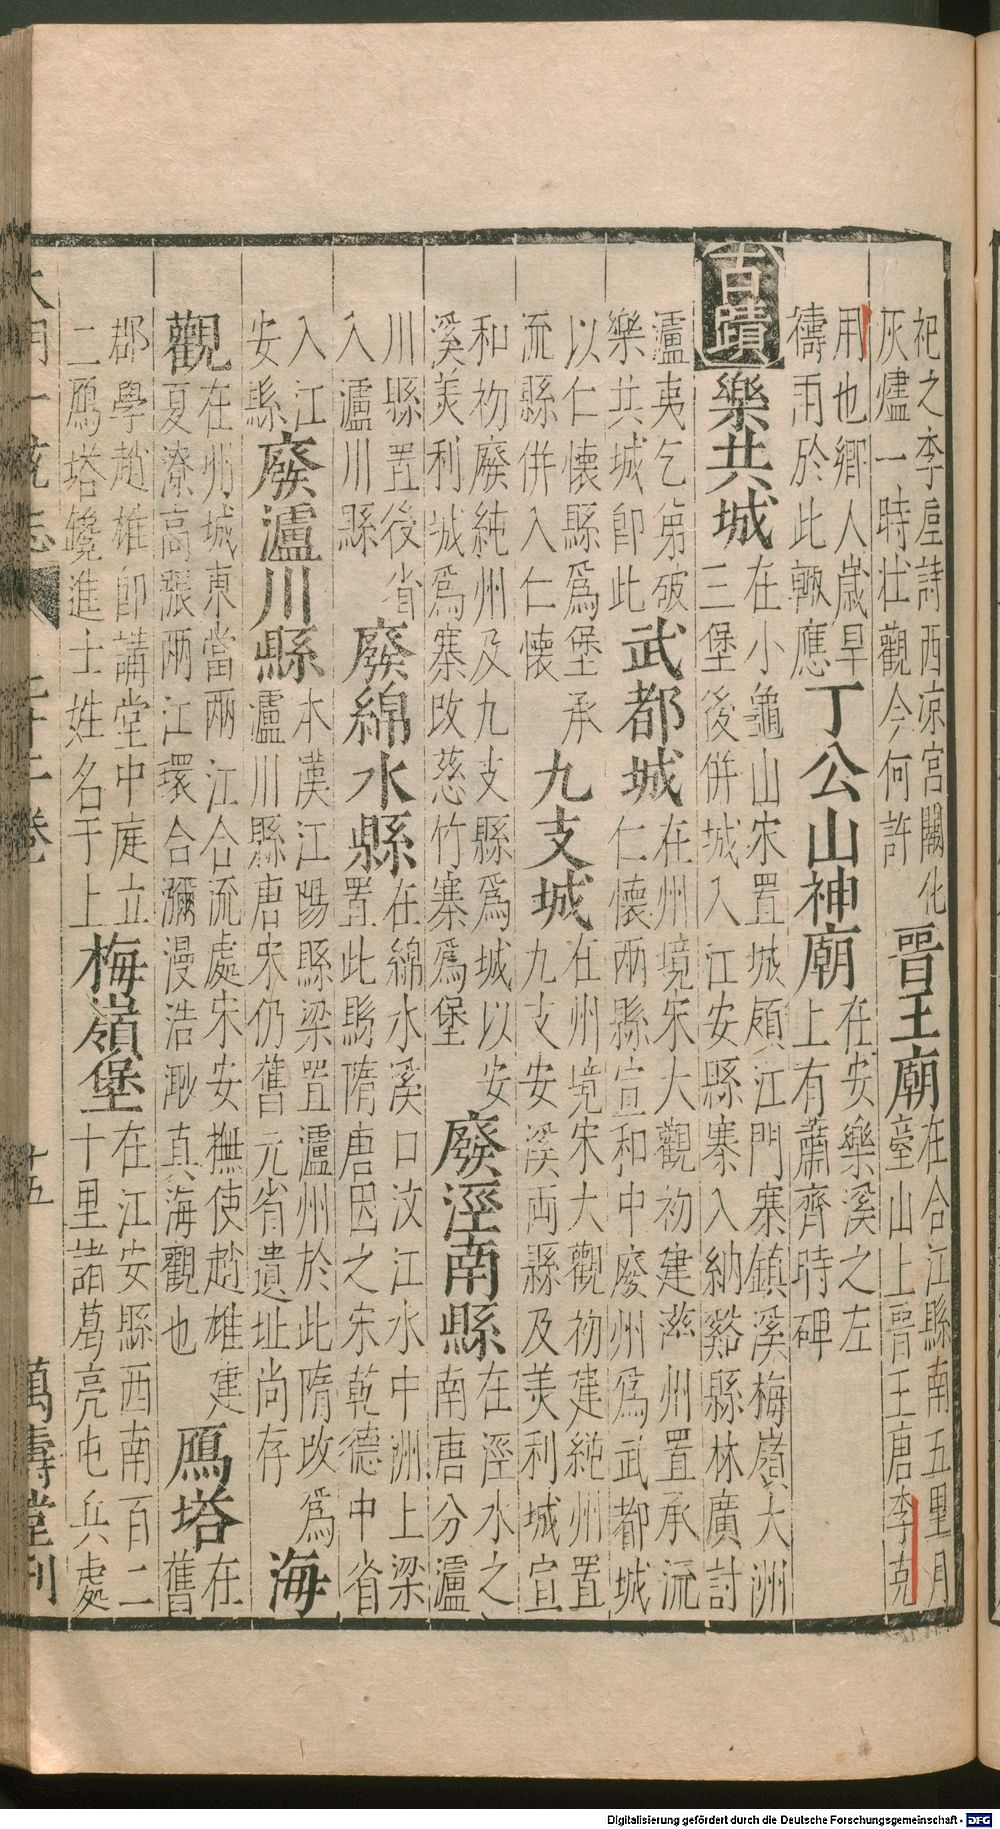 祀之李巨詩西凉宮闕化
灰燼一時壯觀今何許
晉王廟
在合江縣南五里月
臺山上晉王唐李克
用也鄉人歲旱
禱雨於此輙應
丁公山神廟
在安樂溪之左
上有蕭齊時碑
古蹟
樂共城
在小龜山宋置城領江門寨鎮溪梅嶺大洲
三堡後併城入江安縣寨入納谿縣林廣討
瀘夷乞弟破
樂共城即此
武都城
在州境宋大觀初建滋州置承流
仁懷兩縣宣和中廢州爲武都城
以仁懷縣爲堡承
流縣併入仁懷
九支城
在州境宋大觀初建純州置
九支安溪両縣及美利城宣
和初廢純州及九支縣爲城以安
溪美利城爲寨改慈竹寨爲堡
廢涇南縣
在涇水之
南唐分瀘
川縣置後省
入瀘川縣
廢綿水縣
在綿水溪口汶江水中洲上梁
置此縣隋唐因之宋乾德中省
入江
安縣
廢瀘川縣
本漢江陽縣梁置瀘州於此隋改爲
瀘川縣唐宋仍舊元省遺址尚存
海
觀
在州城東當兩江合流處宋安撫使趙雄建
夏潦高漲兩江環合瀰漫浩渺真海觀也
鴈塔
在
舊
郡學趙雄即講堂中庭立
二鴈塔鑱進士姓名于上
梅嶺堡
在江安縣西南百二
十里諸葛亮屯兵處
大明一統志
十二卷
十五
萬壽堂刊
Digitalisierung gefördert durch die Deutsche Forschungsgemeinschaft - DFG